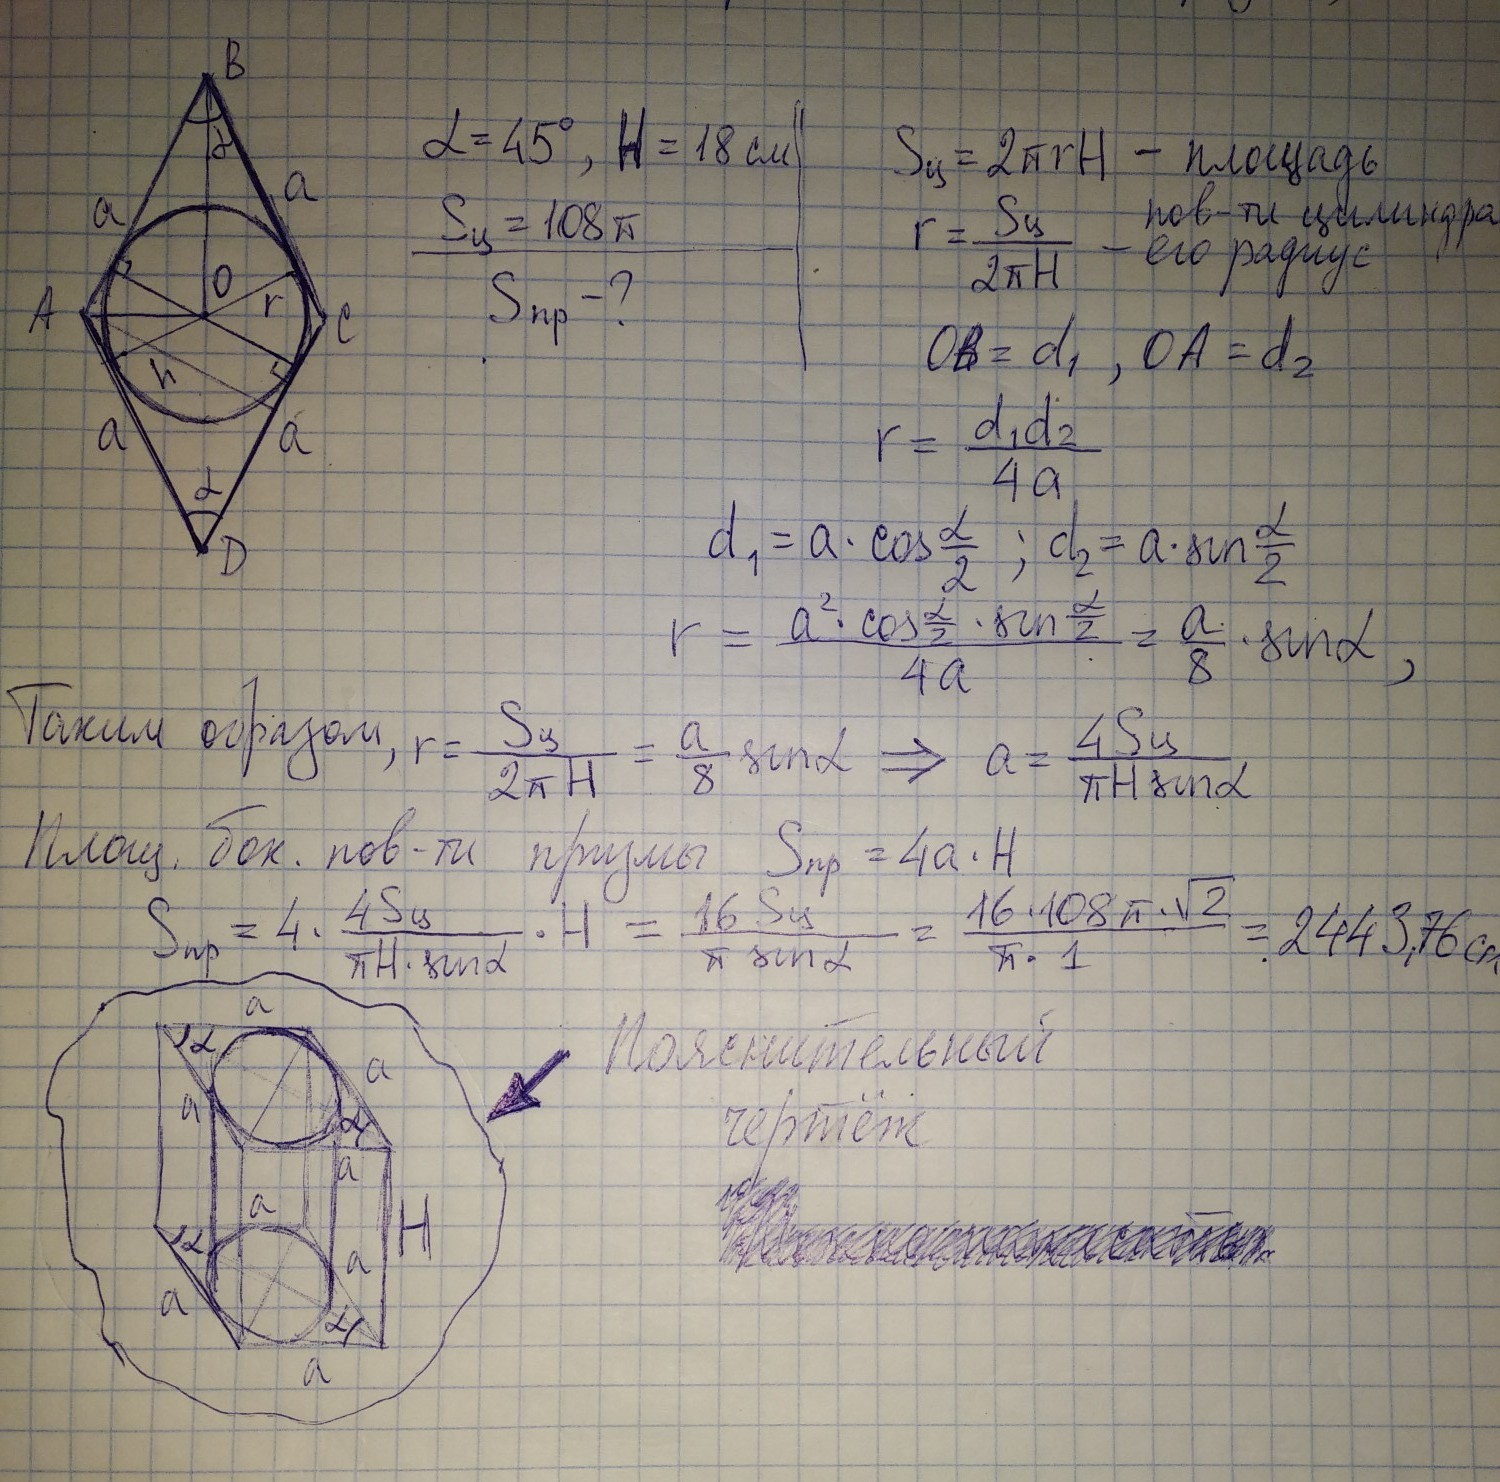 B
α
a
a
A
O
r
C
h
a
a
α
D
α = 45°, H = 18 см
Sц = 108π
Sпр - ?
Sц = 2πrH - площадь
пов-ти цилиндра
r = Sц / 2πH - его радиус
OB = d₁, OA = d₂
r = d₁d₂ / 4a
d₁ = a · cos α/2 ; d₂ = a · sin α/2
r = a² · cos α/2 · sin α/2 / 4a = a/8 · sin α,
Таким образом, r = Sц / 2πH = a/8 sin α ⇒ a = 4Sц / πH sin α
Площ. бок. пов-ти призмы Sпр = 4a · H
Sпр = 4 · 4Sц / πH · sin α · H = 16 Sц / π sin α = 16 · 108π · √2 / π · 1 = 2443,76 см
Пояснительный
чертёж
a
α
a
a
α
a
a
H
α
a
a
α
a